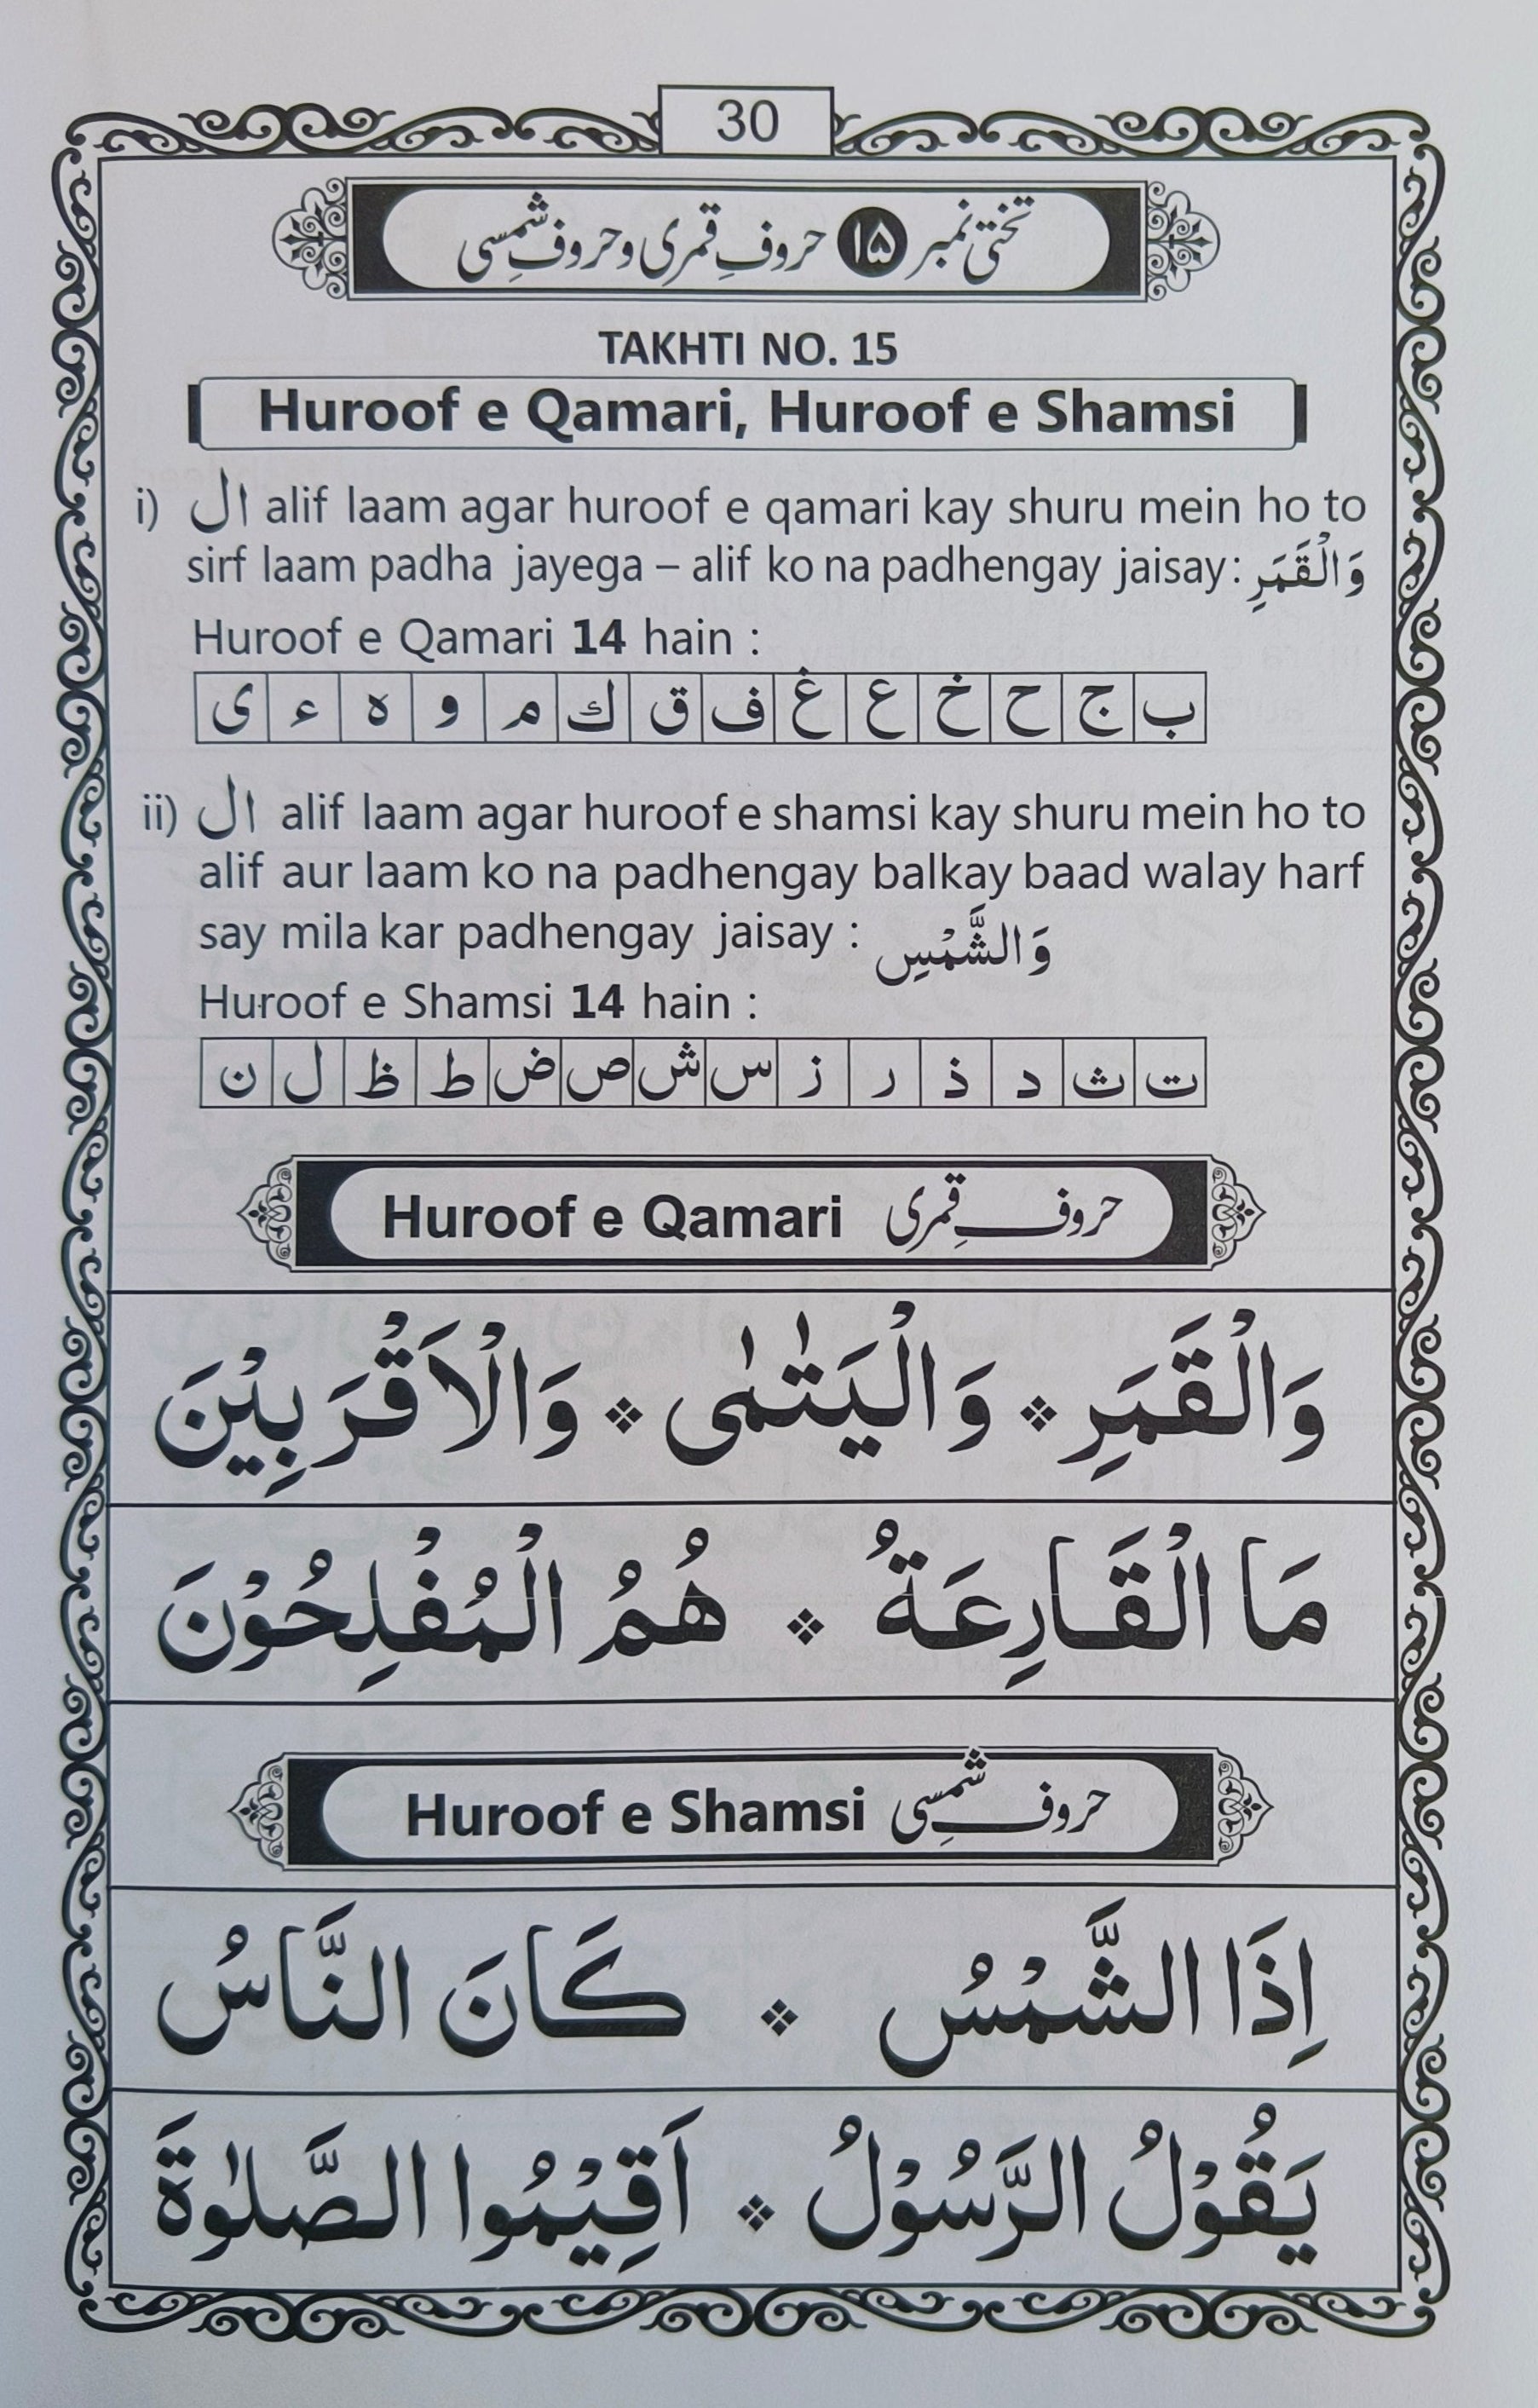 30
تختی نمبر ۱۵ حروفِ قمری و حروفِ شمسی
TAKHTI NO. 15
Huroof e Qamari, Huroof e Shamsi
i) ال alif laam agar huroof e qamari kay shuru mein ho to
sirf laam padha jayega – alif ko na padhengay jaisay: وَالْقَمَرِ
Huroof e Qamari 14 hain :
ب ج ح خ ع غ ف ق ك م و ه ء ی
ii) ال alif laam agar huroof e shamsi kay shuru mein ho to
alif aur laam ko na padhengay balkay baad walay harf
say mila kar padhengay jaisay : وَالشَّمْسِ
Huroof e Shamsi 14 hain :
ت ث د ذ ر ز س ش ص ض ط ظ ل ن
Huroof e Qamari حروفِ قمری
وَالْقَمَرِ ❖ وَالْيَتٰمٰى ❖ وَالْاَقْرَبِيْنَ
مَا الْقَارِعَةُ ❖ هُمُ الْمُفْلِحُوْنَ
Huroof e Shamsi حروفِ شمسی
اِذَا الشَّمْسُ ❖ كَانَ النَّاسُ
يَقُوْلُ الرَّسُوْلُ ❖ اَقِيْمُوا الصَّلٰوةَ